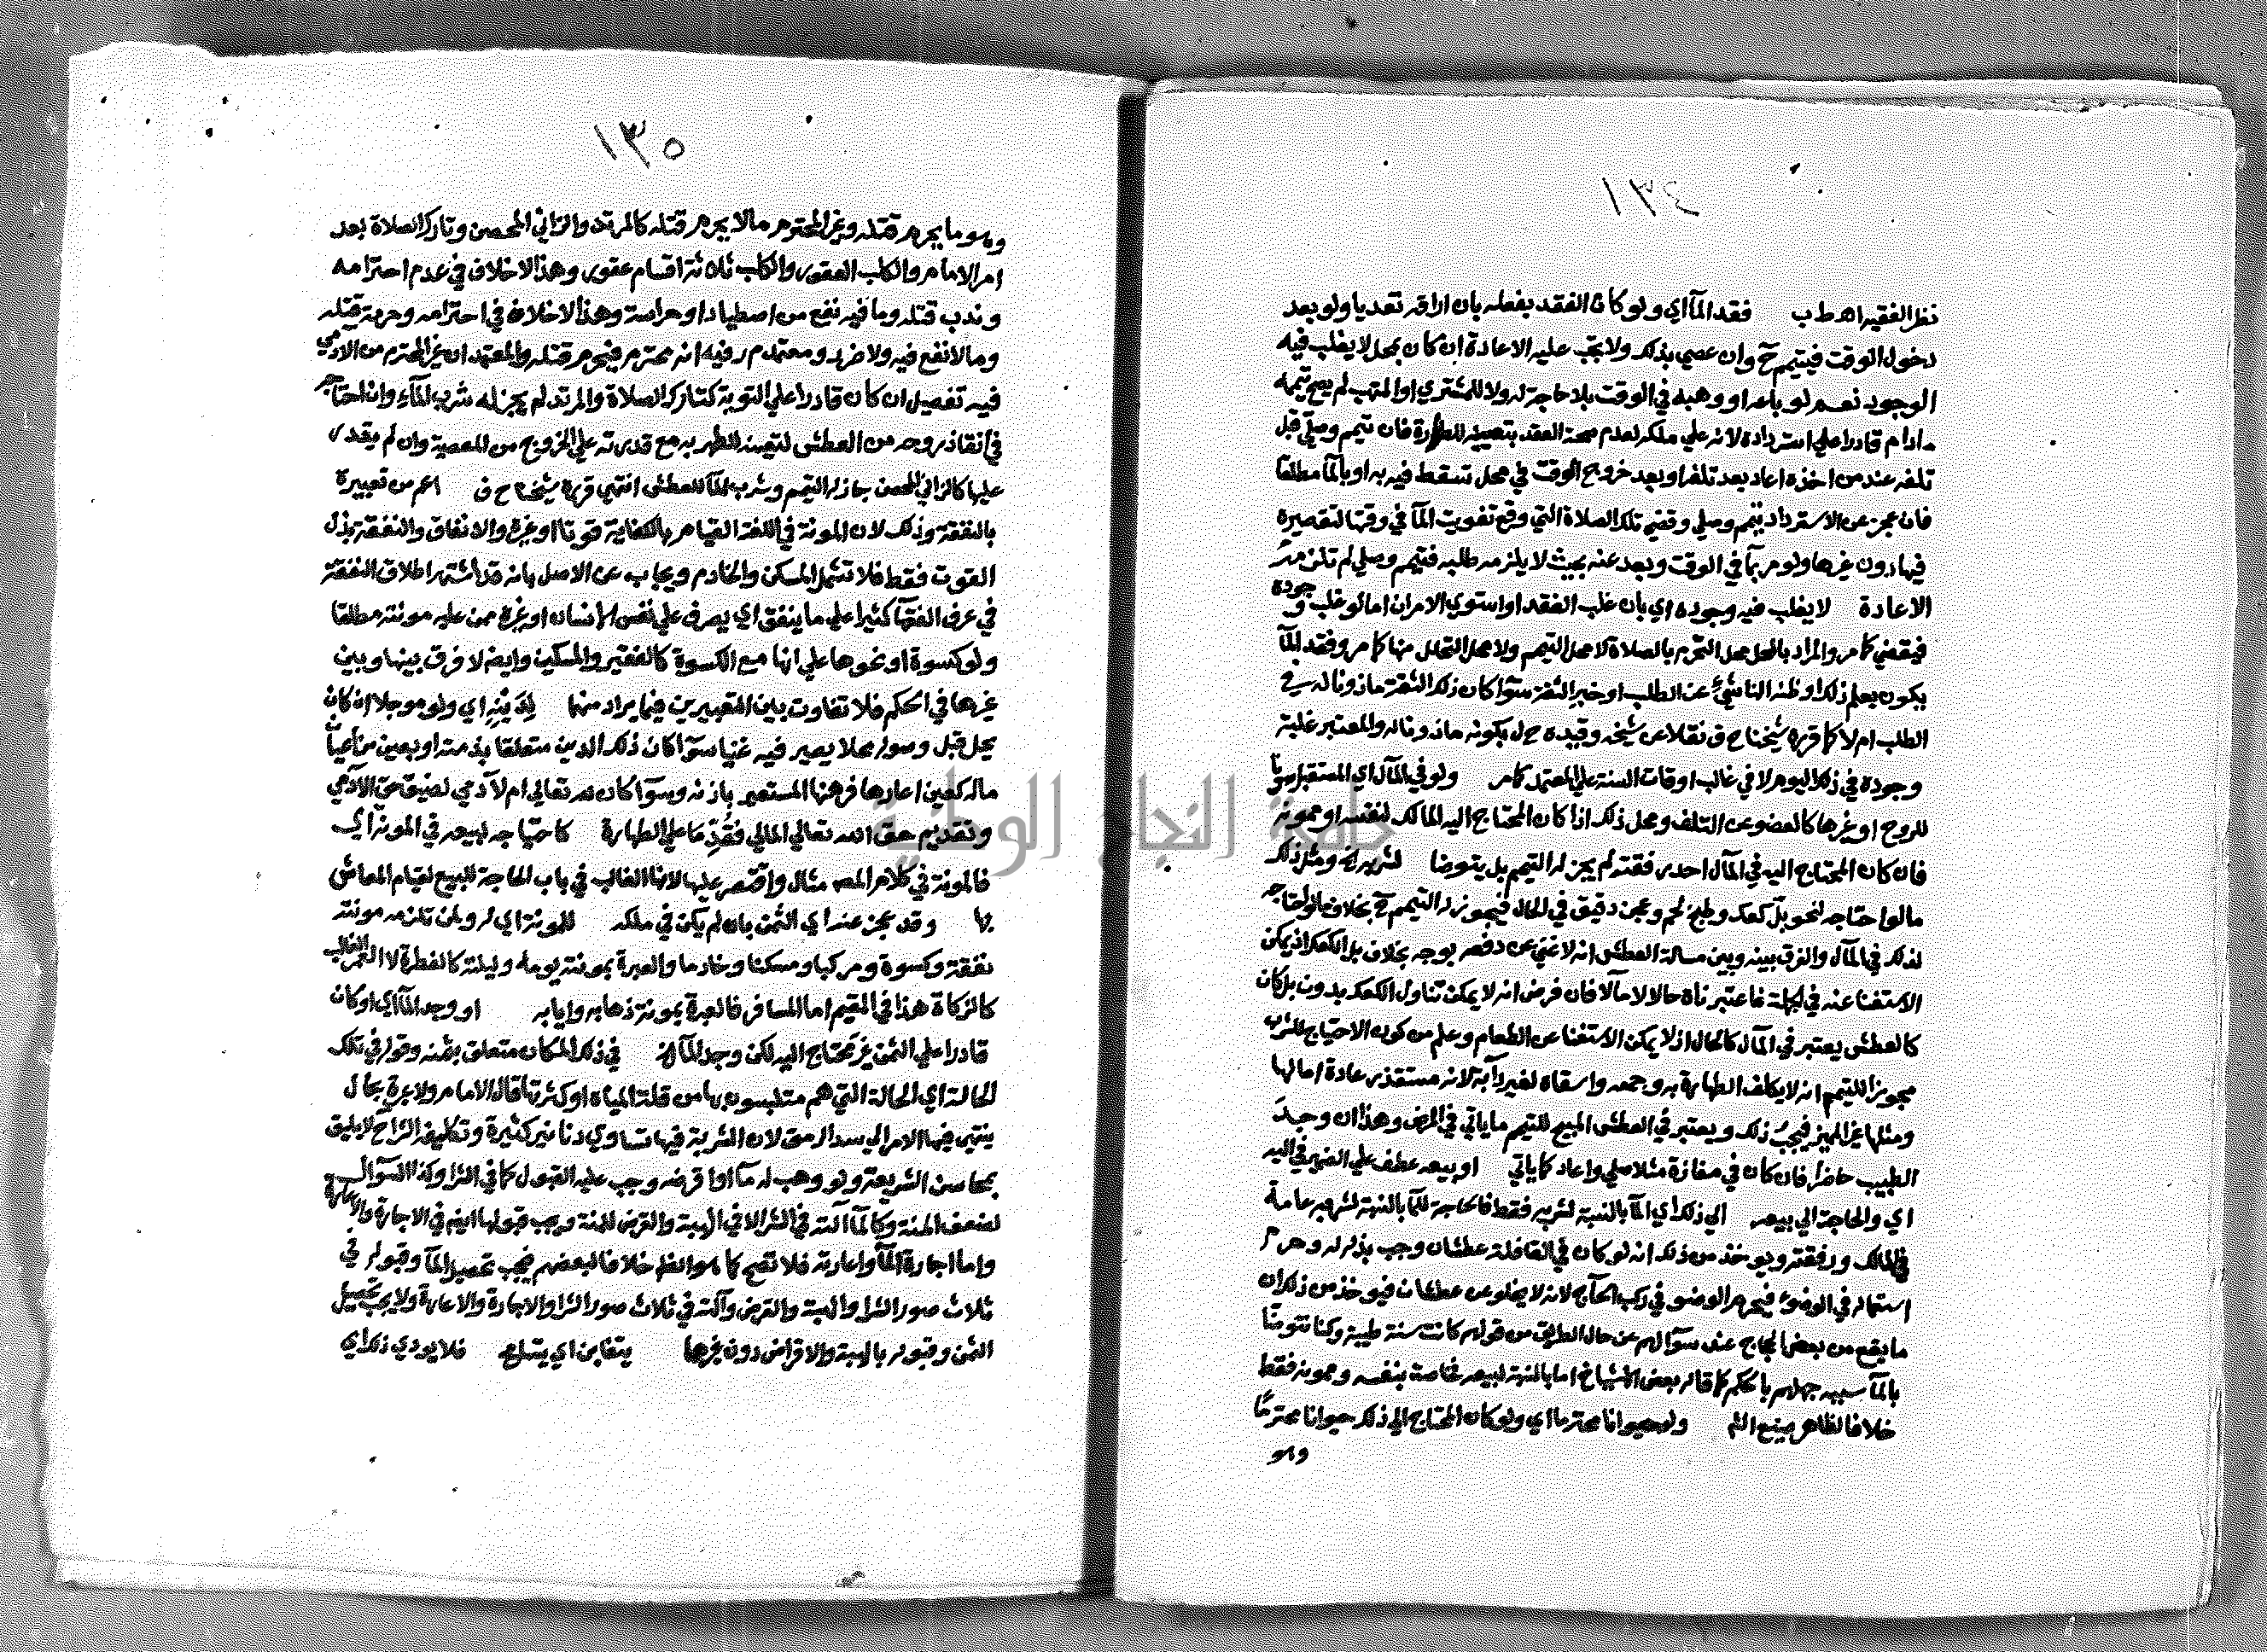 ١٣٤
نظر الفقيه اهـ ط ب فقد الماء اي ولو كان الفقد بفعله بان اراقه تعديا ولو بعد
دخول الوقت فيتيمم ح وان عصي بذلك ولا يجب عليه الاعادة ان كان بمحل لا يغلب فيه
الوجود نعم لو باعه او وهبه في الوقت بلا حاجة له ولا للمشتري او المتهب لم يصح تيممه
مادام قادرا علي استرداده لانه علي ملكه لعدم صحة العقد بتعيينه للطهارة فان تيمم وصلي قبل
تلفه عند من اخذه اعاد بعد تلفه او بعد خروج الوقت في محل تسقط فيه به او بالمآ مطلقا
فان عجز عن الاسترداد تيمم وصلي وقضي تلك الصلاة التي وقع تفويت المآ في وقتها لتقصيره
فيها دون غيرها ولو مر بمآ في الوقت وبعد عنه بحيث لا يلزمه طلبه فتيمم وصلي لم تلزمه
الاعادة لا يغلب فيه وجوده اي بان غلب الفقد او استوي الامران اما لو غلب وجوده
فيقضي كما مر والمراد بالمحل محل التحرم بالصلاة لا محل التيمم ولا محل التحلل منها كما مر وفقد المآ
يكون بعلم ذلك او ظنه الناشئ عن الطلب او خبر الثقة سوآ كان ذلك الثقة ماذونا له في
الطلب ام لا كما قرره شيخنا ح ف نقلا عن شيخه وقيده ح ل بكونه ماذونا له والمعتبر غلبة
وجوده في ذلك اليوم لا في غالب اوقات السنة علي المعتمد كما مر ولو في المآل اي المستقبل صونا
للروح او غيرها كالعضو عن التلف ومحل ذلك اذا كان المحتاج اليه المالك لنفسه او ممونه
فان كان المحتاج اليه في المآل احد رفقته لم يجز له التيمم بل يتوضا لشربه الخ ومثل ذلك
ما لو احتاجه لنحو بل كعك وطبخ لحم وعجن دقيق في الحال فيجوز له التيمم ح بخلاف ما لو احتاجه
لذلك في المآل والفرق بينه وبين مسالة العطش انه لا غني عن دفعه بوجه بخلاف بل الكعك اذ يمكن
الاستغنا عنه في الجملة فاعتبرناه حالا لا مآلا فان فرض انه لا يمكن تناول الكعك بدون بل كان
كالعطش يعتبر في المآل كالحال اذ لا يمكن الاستغنا عن الطعام وعلم من كون الاحتياج للشرب
مجوزا للتيمم انه لا يكلف الطهارة به وجمعه واسقاه لغير دآبة لانه مستقذر عادة اما لها
ومثلها غير المميز فيجب ذلك ويعتبر في العطش المبيح للتيمم ما ياتي في المرض وهذا ان وجد
الطبيب حاضرا فان كان في مفازة مثلا صلي واعاد كما ياتي او بيعه عطف علي الضمير في اليه
اي والحاجة الي بيعه الي ذلك اي المآ بالنسبة لشربه فقط فالحاجة للمآ بالنسبة لشربه عامة
في المالك ورفقته ويوخذ من ذلك انه لو كان في القافلة عطشان وجب بذله له وحرم
استعماله في الوضوء فيحرم الوضو في ركب الحآج لانه لا يخلو عن عطشان فيوخذ من ذلك ان
ما يقع من بعض الحجاج عند سوآلهم عن حال الطريق من قولهم كانت سنة طيبة وكنا نتوضا
بالمآ سببه جهلهم بالحكم كما قاله بعض الاشياخ اما بالنسبة لبيعه فخاصة بنفسه وممونه فقط
خلافا لظاهر صنيع الشم ولو حيوانا محترما اي ولو كان المحتاج الي ذلك حيوانا محترما
وهو
١٣٥
وهو ما يحرم قتله وغير المحترم ما لا يحرم قتله كالمرتد والزاني المحصن وتارك الصلاة بعد
امر الامام والكلب العقور والكلب ثلاثة اقسام عقور وهذا لاخلاف في عدم احترامه
وندب قتله وما فيه نفع من اصطياد او حراسة وهذا لاخلاف في احترامه وحرمة قتله
وما لا نفع فيه ولا ضرر ومعتمد م ر فيه انه محترم فيحرم قتله والمعتمد ان غير المحترم من الادمي
فيه تفصيل ان كان قادرا علي التوبة كتارك الصلاة والمرتد لم يجز له شرب المآء وان احتاجه
في انقاذ روحه من العطش لتعينه للطهر به مع قدرته علي الخروج من المعصية وان لم يقدر
عليها كالزاني المحصن جاز له التيمم وشرب المآ للعطش انتهي قرره شيخنا ح ف اعم من تعبيره
بالنفقة وذلك لان المونة في اللغة القيام بالكفاية قوتا او غيره والانفاق والنفقة بذل
القوت فقط فلا تشمل المسكن والخادم ويجاب عن الاصل بانه قد اشتهر اطلاق النفقة
في عرف الفقهآ كثيرا علي ما ينفق اي يصرف علي نفس الانسان او غيره ممن عليه مونته مطلقا
ولو كسوة او نحوها علي انها مع الكسوة كالفقير والمسكين وايضا لا فرق بينها وبين
غيرها في الحكم فلا تفاوت بين التعبيرين فيما يراد منهما لدينه اي ولو موجلا ان كان
يحل قبل وصوله محلا يصير فيه غنيا سوآ كان ذلك الدين متعلقا بذمته او بعين من اعيان
ماله كعين اعارها فرهنها المستعير باذنه وسوآ كان لله تعالي ام لآدمي لضيق حق الآدمي
وتقديم حق الله تعالي المالي فقدما علي الطهارة كاحتياجه لبيعه في المونة اي
فالمونة في كلام المصـ مثال واقتصر عليها لانها الغالب في باب الحاجة للبيع لقيام المعاش
بها وقد عجز عنه اي الثمن بان لم يكن في ملكه للمونة اي له ولمن تلزمه مونته
نفقة وكسوة ومركبا ومسكنا وخادما والعبرة بمونة يومه وليلته كالفطرة لا العمر الغالب
كالزكاة هذا في المقيم اما المسافر فالعبرة بمونة ذهابه وايابه او وجد المآ اي او كان
قادرا علي الثمن غير محتاج اليه لكن وجد المآ الخ في ذلك المكان متعلق بثمنه وقوله في تلك
الحالة اي الحالة التي هم متلبسون بها من قلة المياه او كثرتها قال الامام ولا عبرة بحال
ينتهي فيها الامر الي سد الرمق لان الشربة فيها تساوي دنانير كثيرة وتكليفه الزآئد ح لا يليق
بمحاسن الشريعة ولو وهب له مآ او اقرضه وجب عليه القبول كما في الشرا وكذا السوآل
لضعف المنة وكالمآ آلته في الشرا لا في الهبة والقرض للمنة ويجب قبولها ايضا في الاجارة والاعارة
واما اجارة المآ واعارته فلا تصح كما هو الظاهر خلافا لبعضهم فيجب تحصيل المآ وقبوله في
ثلاث صور الشرا والهبة والقرض وآلته في ثلاث صور الشرا والاجارة والاعارة ولا يجب تحصيل
الثمن وقبوله بالهبة والاقراض دون غيرها يتغابن اي يتسامح فلا يودي ذلك اي
جامعة النجاح الوطنية